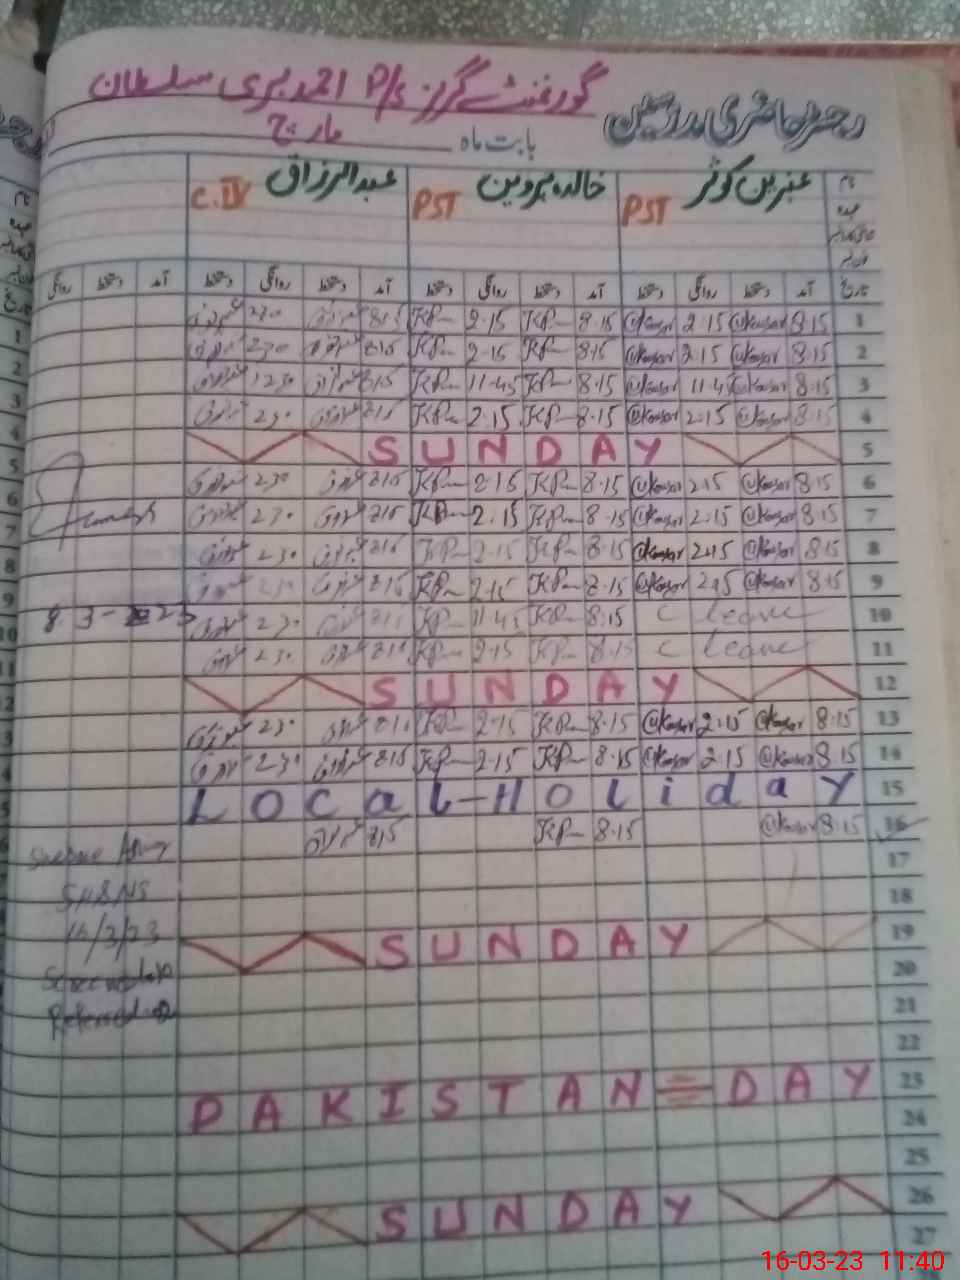 رجسٹر حاضری مدرسین گورنمنٹ گرلز P/S احمد بری سلطان
بابت ماہ مارچ
نام عنبرین کوثر PST خالدہ پروین PST عبدالرزاق C.IV
عہدہ
تاریخ آمد دستخط روانگی دستخط آمد دستخط روانگی دستخط آمد دستخط روانگی دستخط آمد دستخط روانگی
1 8.15 @Kausar 2.15 @Kausar 8.15 KP 2.15 KP 8.15 2.30
2 8.15 @Kausar 2.15 @Kausar 8.15 KP 2.15 KP 8.15 2.30
3 8.15 @Kausar 11.45 @Kausar 8.15 KP 11.45 KP 8.15 12.30
4 8.15 @Kausar 2.15 @Kausar 8.15 KP 2.15 KP 8.15 2.30
5 SUNDAY
6 8.15 @Kausar 2.15 @Kausar 8.15 KP 2.15 KP 8.15 2.30
7 8.15 @Kausar 2.15 @Kausar 8.15 KP 2.15 KP 8.15 2.30
8 8.15 @Kausar 2.15 @Kausar 8.15 KP 2.15 KP 8.15 2.30
9 8.15 @Kausar 2.15 @Kausar 8.15 KP 2.15 KP 8.15 2.30
10 C leave 8.15 KP 11.45 KP 8.15 2.30 8.3-2023
11 C leave 8.15 KP 2.15 KP 8.15 2.30
12 SUNDAY
13 8.15 @Kausar 2.15 @Kausar 8.15 KP 2.15 KP 8.15 2.30
14 8.15 @Kausar 2.15 @Kausar 8.15 KP 2.15 KP 8.15 2.30
15 LOCaL-HOLidaY
16 8.15 @Kausar 8.15 KP 8.15
17
18
16/3/23
19 SUNDAY
20
21
Referred
22
23 PAKISTAN = DAY
24
25
26 SUNDAY
27
16-03-23 11:40